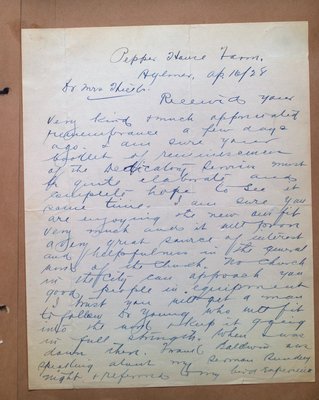 Pepper House Farm,
Aylmer, Ap 16/28
Dr Mrs
Received your
very kind + much appreciated
remembrance a few days
ago. I am sure your
booklet of reminiscences
of the Dedicatory Services must
be quite elaborate and
hope to see it
some time. I am sure you
are enjoying the new out fit
very much and it will prove
a very great source of interest
and helpfulness in the general
work of the Church. No Church
in the City can approach you
good people in equipment
I trust you will get a man
to follow Dr Young, who will fit
into the work + keep it going
in full strength. When I was
down there. Frank Baldwin was
speaking about my sermon Sunday
night + referred to my